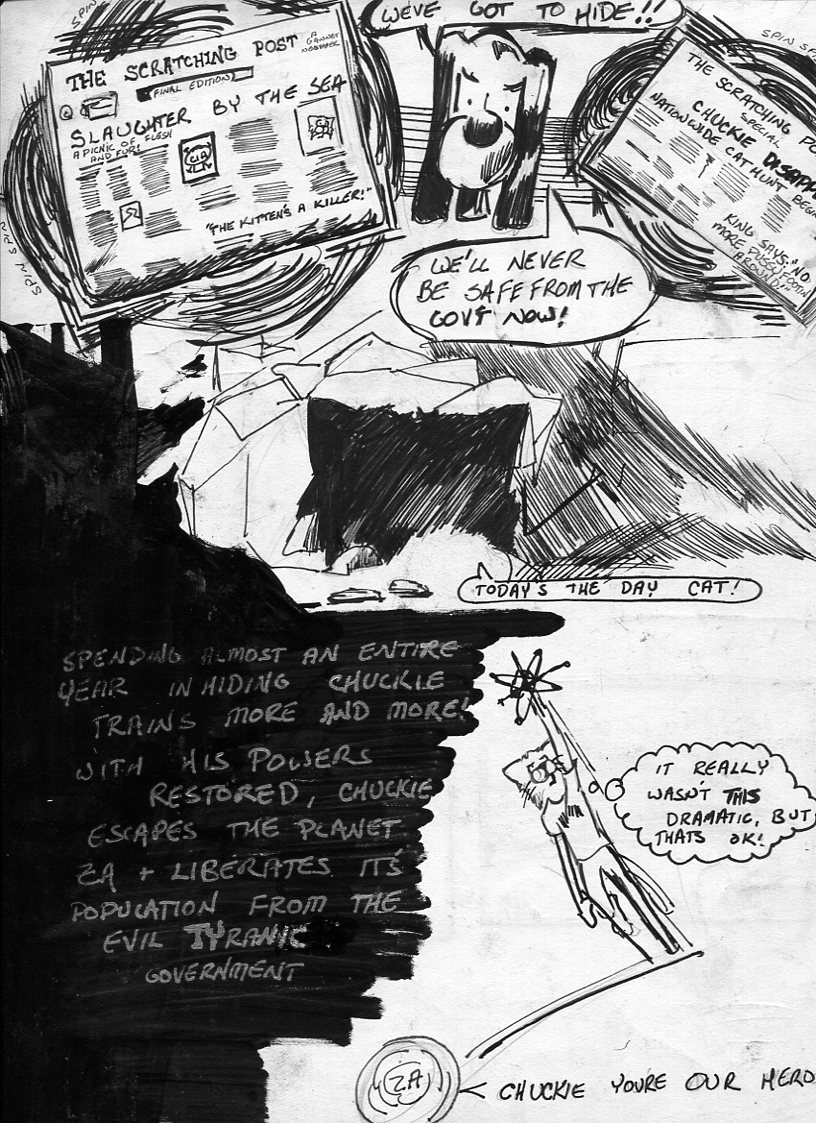 SPIN SPIN
THE SCRATCHING POST
A GANNET NEWSPAPER
(FINAL EDITION)
SLAUGHTER BY THE SEA
A PICNIC OF FLESH
AND FUR!
"THE KITTEN'S A KILLER!"
SPIN SPIN
WE'VE GOT TO HIDE!!
WE'LL NEVER
BE SAFE FROM THE
GOVT NOW!
SPIN SP
THE SCRATCHING PO
SPECIAL
CHUCKIE DISAPP
NATIONWIDE CAT HUNT BEGI
KING SAYS "NO
MORE PUSSYFOOTIN
AROUND!"
TODAY'S THE DAY CAT!
SPENDING ALMOST AN ENTIRE
YEAR IN HIDING CHUCKIE
TRAINS MORE AND MORE!
WITH HIS POWERS
RESTORED, CHUCKIE
ESCAPES THE PLANET
ZA + LIBERATES IT'S
POPULATION FROM THE
EVIL TYRANIC
GOVERNMENT
IT REALLY
WASN'T THIS
DRAMATIC, BUT
THATS OK!
ZA
CHUCKIE YOU'RE OUR HERO